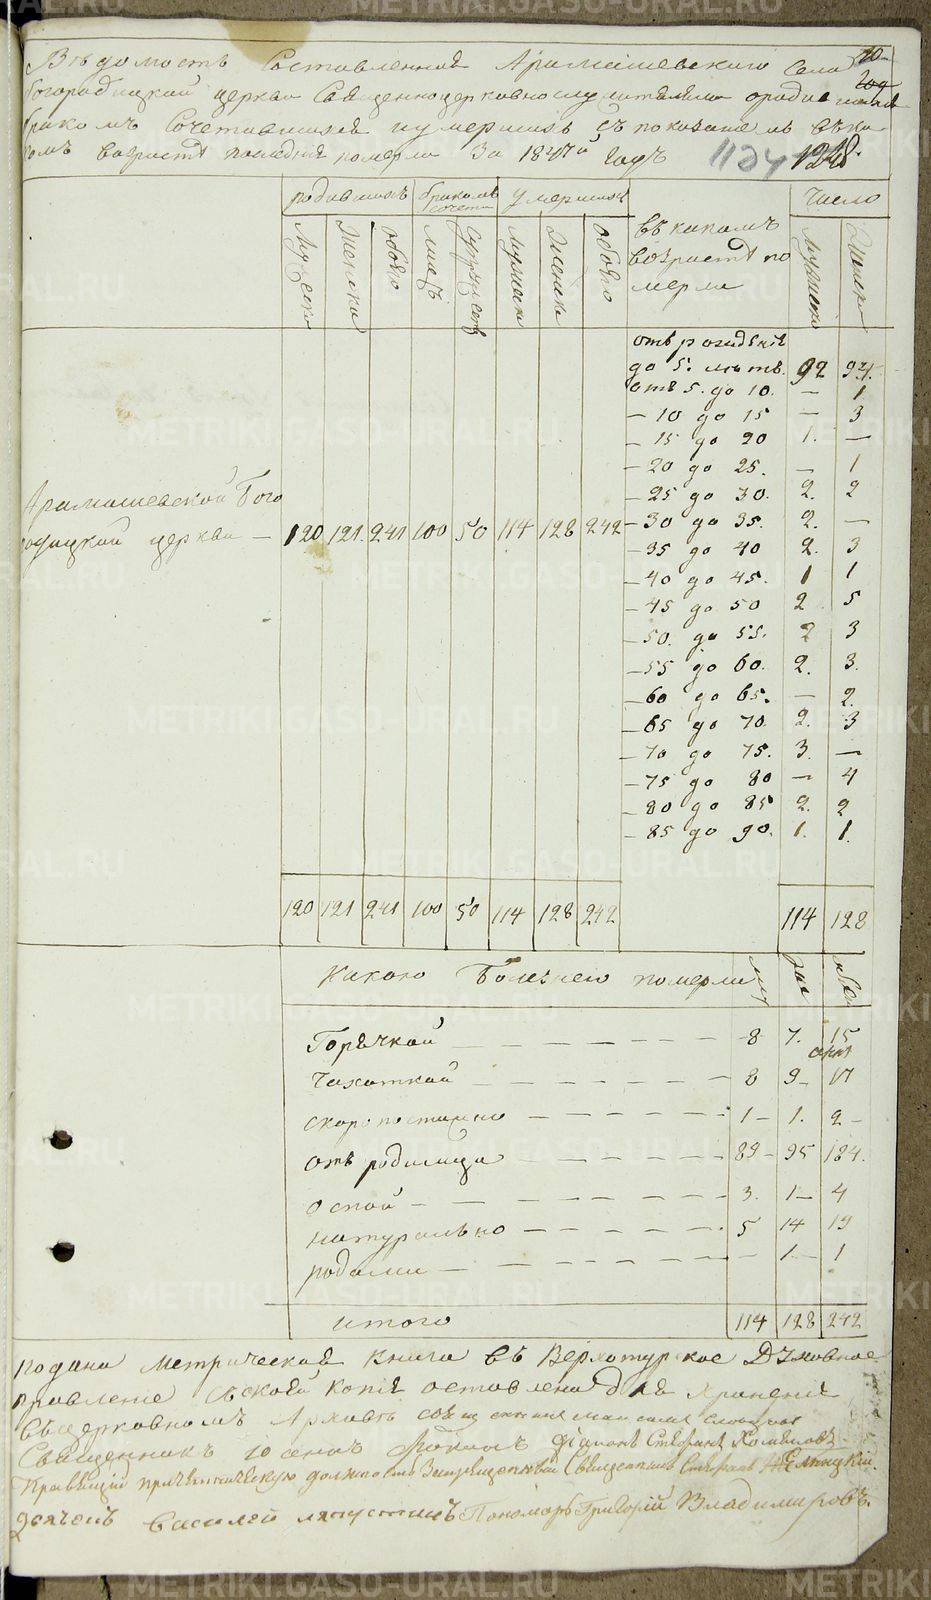 Вѣдомость Составленная Арамашевскаго Села
богородицкой церкви Священноцерковнослужителями о родившихся
бракомъ Сочетавшихся и умершихъ съ показаніемъ въ ка
комъ возрастѣ последніе померли За 18 годъ 1248.
родившихъ бракомъ сочета умершихъ въ какомъ возрастѣ померли Число
Мужеска Женска обоего лицъ Супружествъ мужеска Женска обоего Мужеска Женска
отъ рожденія
до 5. лѣтъ. 92 94.
отъ 5. до 10. — 1
— 10 до 15 — 3
— 15 до 20 1. —
— 20 до 25. — 1
— 25 до 30. 2. 2
Арамашевской Бого
родицкой церкви — 120 121. 241 100 50 114 128 242
— 30 до 35. 2. —
— 35 до 40 2. 3
— 40 до 45. 1 1
— 45 до 50 2 5
— 50. до 55. 2 3
— 55 до 60. 2. 3.
— 60 до 65. — 2.
— 65 до 70. 2. 3
— 70 до 75. 3. —
— 75 до 80 — 4
— 80 до 85 2. 2
— 85 до 90. 1. 1.
120 121 241 100 50 114 128 242 114 128
Какою Болезнею померли муж жен обое
Горячкой 8 7. 15
Чахоткой 8 9 17
скоропостижно 1 1. 2
отъ родимца 89 95 184.
оспой 3. 1 4
натурально 5 14 19
родами — 1 1
итого 114 128 242
подана Метрическая книга въ Верхотурское Духовное
правленіе съ коей копія оставлена для храненія
въ церковномъ Архивѣ
Священникъ діаконъ Стефанъ Хомяковъ
Правящій причетническую должность Запрещенный Священникъ Стефанъ
Дьячекъ василей ляпустинъ Пономарь Григорій Владимировъ.
METRIKI.GASO-URAL.RU